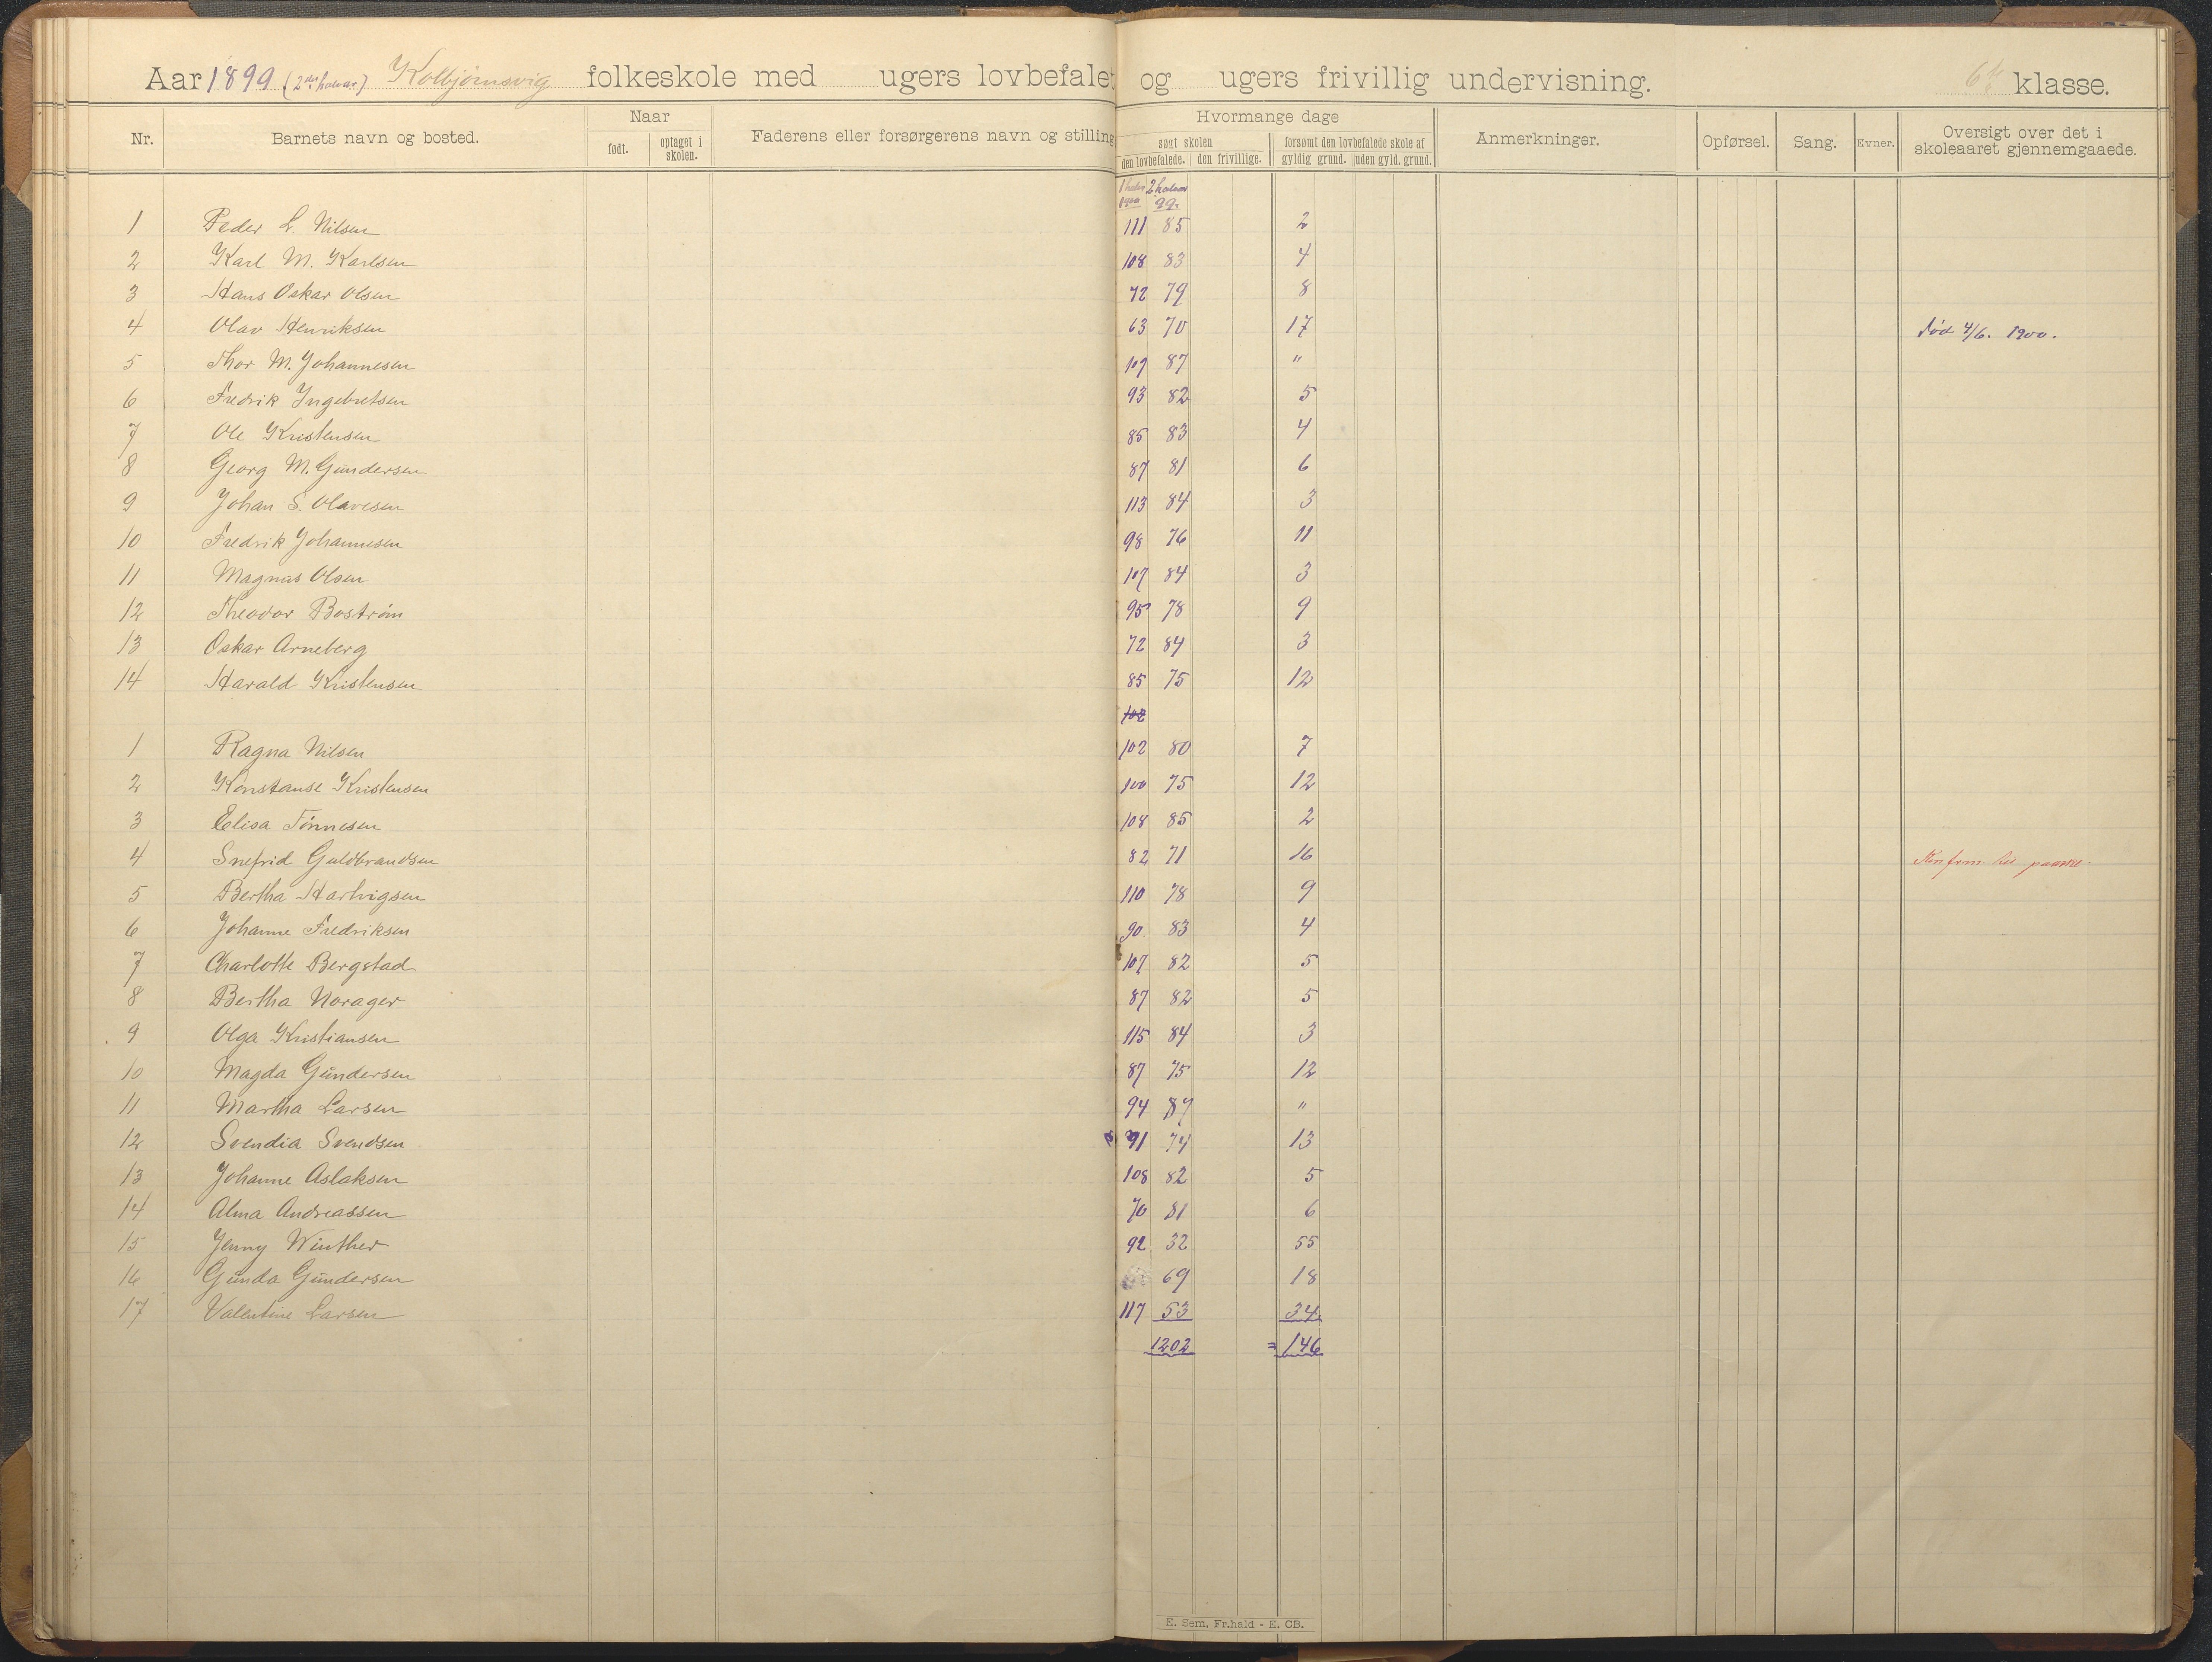 Aar 1899 (2det halvaar) Kolbjørnsvig folkeskole med ugers lovbefalet og ugers frivillig undervisning. 6te klasse.
Nr. Barnets navn og bosted. Naar født. optaget i skolen. Faderens eller forsørgerens navn og stilling Hvormange dage søgt skolen den lovbefalede. den frivillige. forsømt den lovbefalede skole af gyldig grund. uden gyld. grund. Anmerkninger. Opførsel. Sang. Evner. Oversigt over det i skoleaaret gjennemgaaede.
1 halvr 2 halvaar
1900 99.
1 Peder L. Nilsen 111 85 2
2 Karl M. Karlsen 108 83 4
3 Hans Oskar Olsen 72 79 8
4 Olav Henriksen 63 70 17 død 4/6. 1900.
5 Thor M. Johannesen 109 87 "
6 Fredrik Ingebretsen 93 82 5
7 Ole Kristensen 85 83 4
8 Georg M. Gundersen 87 81 6
9 Johan S. Olavesen 113 84 3
10 Fredrik Johannesen 98 76 11
11 Magnus Olsen 107 84 3
12 Theodor Boström 95 78 9
13 Oskar Arneberg 72 84 3
14 Harald Kristensen 85 75 12
102
1 Ragna Nilsen 102 80 7
2 Konstanse Kristensen 100 75 12
3 Elisa Tønnesen 108 85 2
4 Snefrid Guldbrandsen 82 71 16 Konfirm. til paaske.
5 Bertha Hartvigsen 110 78 9
6 Johanne Fredriksen 90 83 4
7 Charlotte Bergstad 107 82 5
8 Bertha Norager 87 82 5
9 Olga Kristiansen 115 84 3
10 Magda Gundersen 87 75 12
11 Martha Larsen 94 87 "
12 Svendia Svendsen 91 74 13
13 Johanne Aslaksen 108 82 5
14 Alma Andreassen 70 81 6
15 Jenny Winther 92 32 55
16 Gunda Gundersen 69 18
17 Valentine Larsen 117 53 34
1202 = 146
E. Sem, Fr.hald - E. CB.